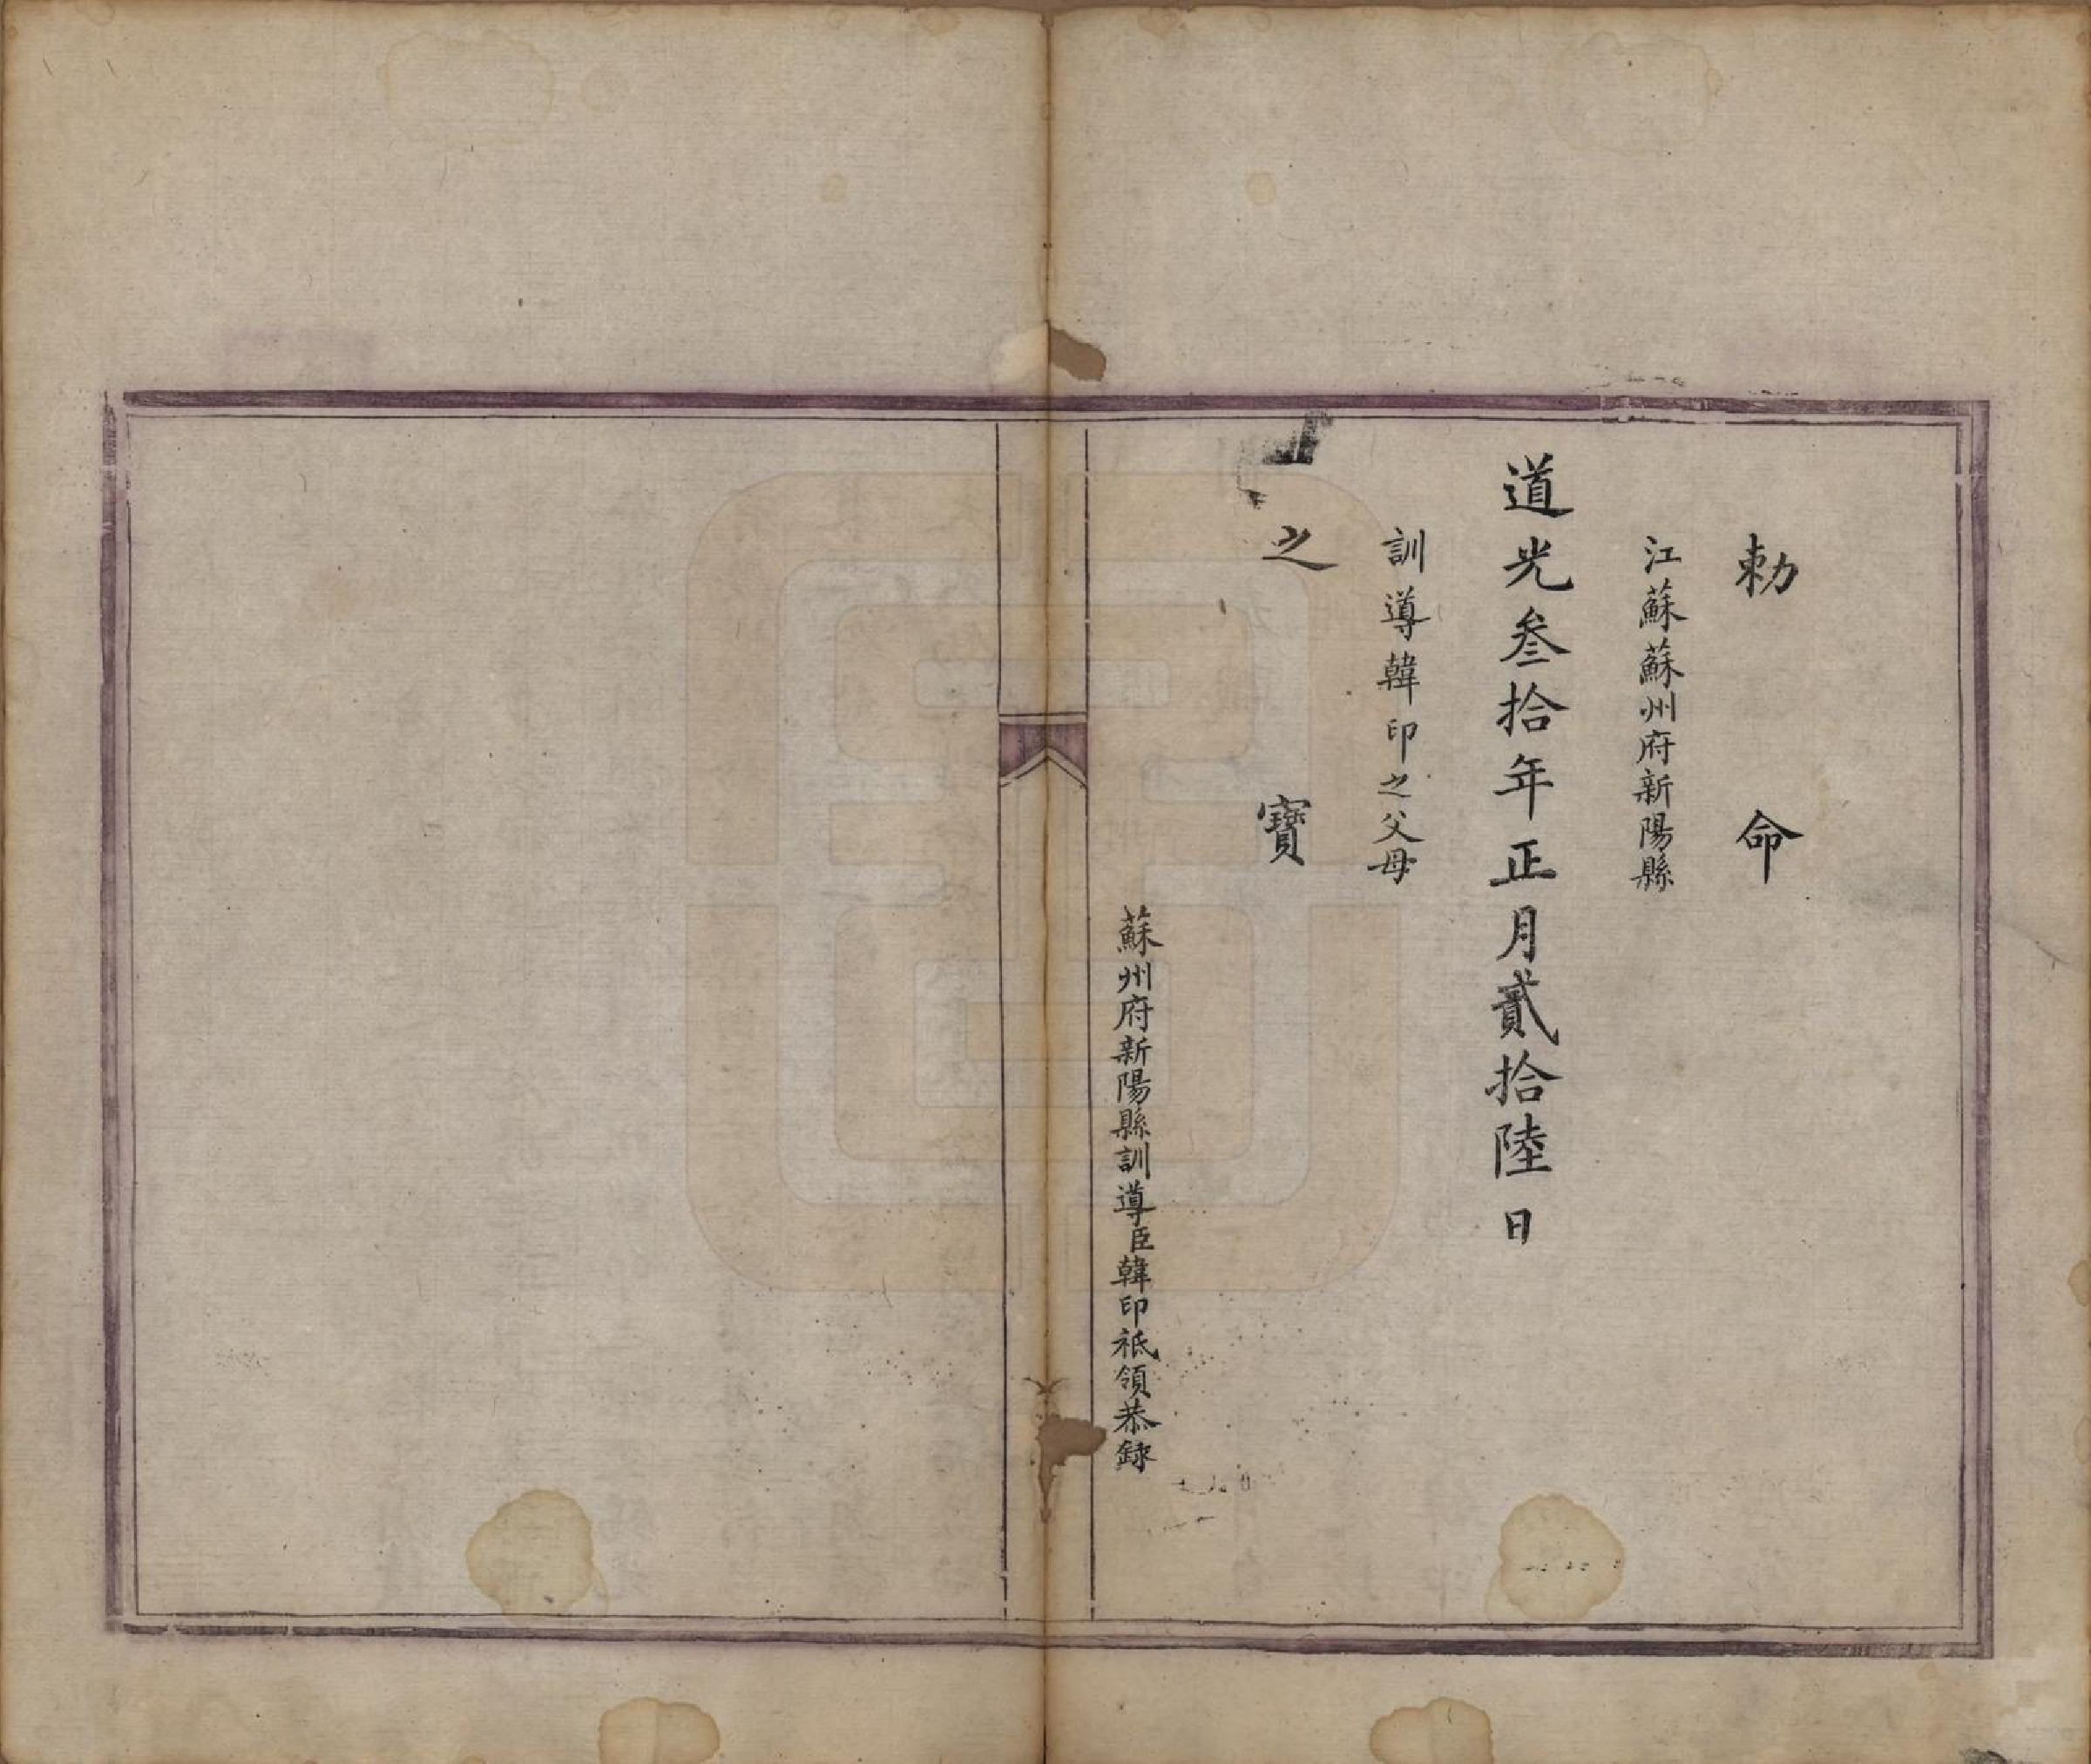 勅命
江蘇蘇州府新陽縣
道光叄拾年正月貳拾陸日
訓導韓印之父母
之寶
蘇州府新陽縣訓導臣韓印祗領恭錄